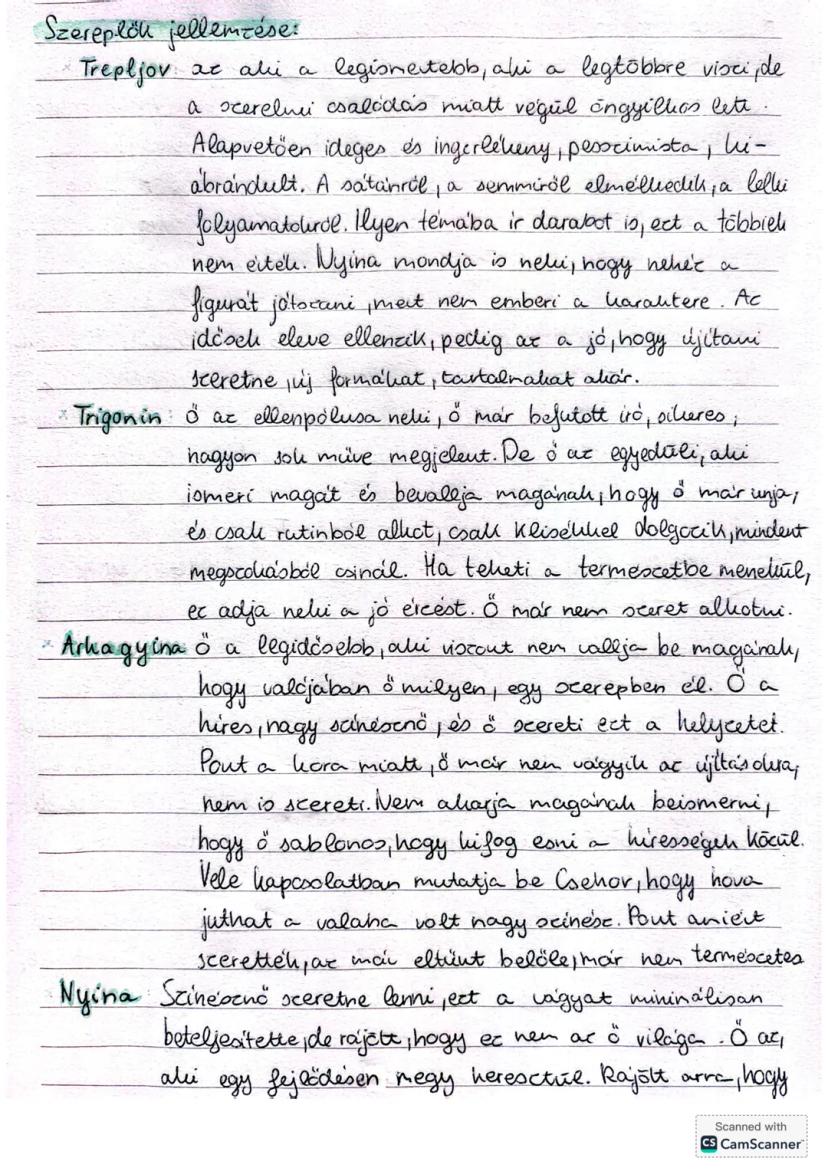 Szereplők jellemzése:
Trepljov az aki a legismertebb, aki a legtöbbre viszi, de
a szerelmi csalódás miatt végül öngyilkos lett.
Alapvetően ideges és ingerlékeny, pesszimista, ki-
ábrándult. A sátánról, a semmiről elmélkedik, a lelki
folyamatokról. Ilyen témába ír darabot is, ezt a többiek
nem érték. Nyina mondja is neki, hogy nehéz a
figurát játszani, mert nem emberi a karaktere. Az
idősek eleve ellenzik, pedig az a jó, hogy újítani
szeretne, új formákat, tartalmakat akár.
Trigonin: Ő az ellenpólusa neki, ő már befutott író, sikeres,
nagyon sok műve megjelent. De ő az egyedüli, aki
ismeri magát és bevallja magának, hogy ő már unja,
és csak rutinból alkot, csak klisékkel dolgozik, mindent
megszokásból csinál. Ha teheti a természetbe menekül,
ez adja neki a jó érzést. Ő már nem szeret alkotni.
Arkagyina Ő a legidősebb, aki viszont nem vallja be magának,
hogy valójában ő milyen, egy szerepben él. Ő a
híres, nagy színésznő, és ő szereti ezt a helyzetet.
Pont a kora miatt, ő már nem vágyik az újításokra,
nem is szereti. Nem akarja magának beismerni,
hogy ő sablonos, hogy ki fog esni a hírességek közül.
Vele kapcsolatban mutatja be Csehov, hogy hova
juthat a valaha volt nagy színész. Pont amiért
szerették, az már eltűnt belőle, már nem természetes
Nyina: Színésznő szeretne lenni, ezt a vágyat minimálisan
beteljesítette, de rájött, hogy ez nem az ő világa. Ő az,
aki egy fejlődésen megy keresztül. Rájött arra, hogy
Scanned with
CS CamScanner